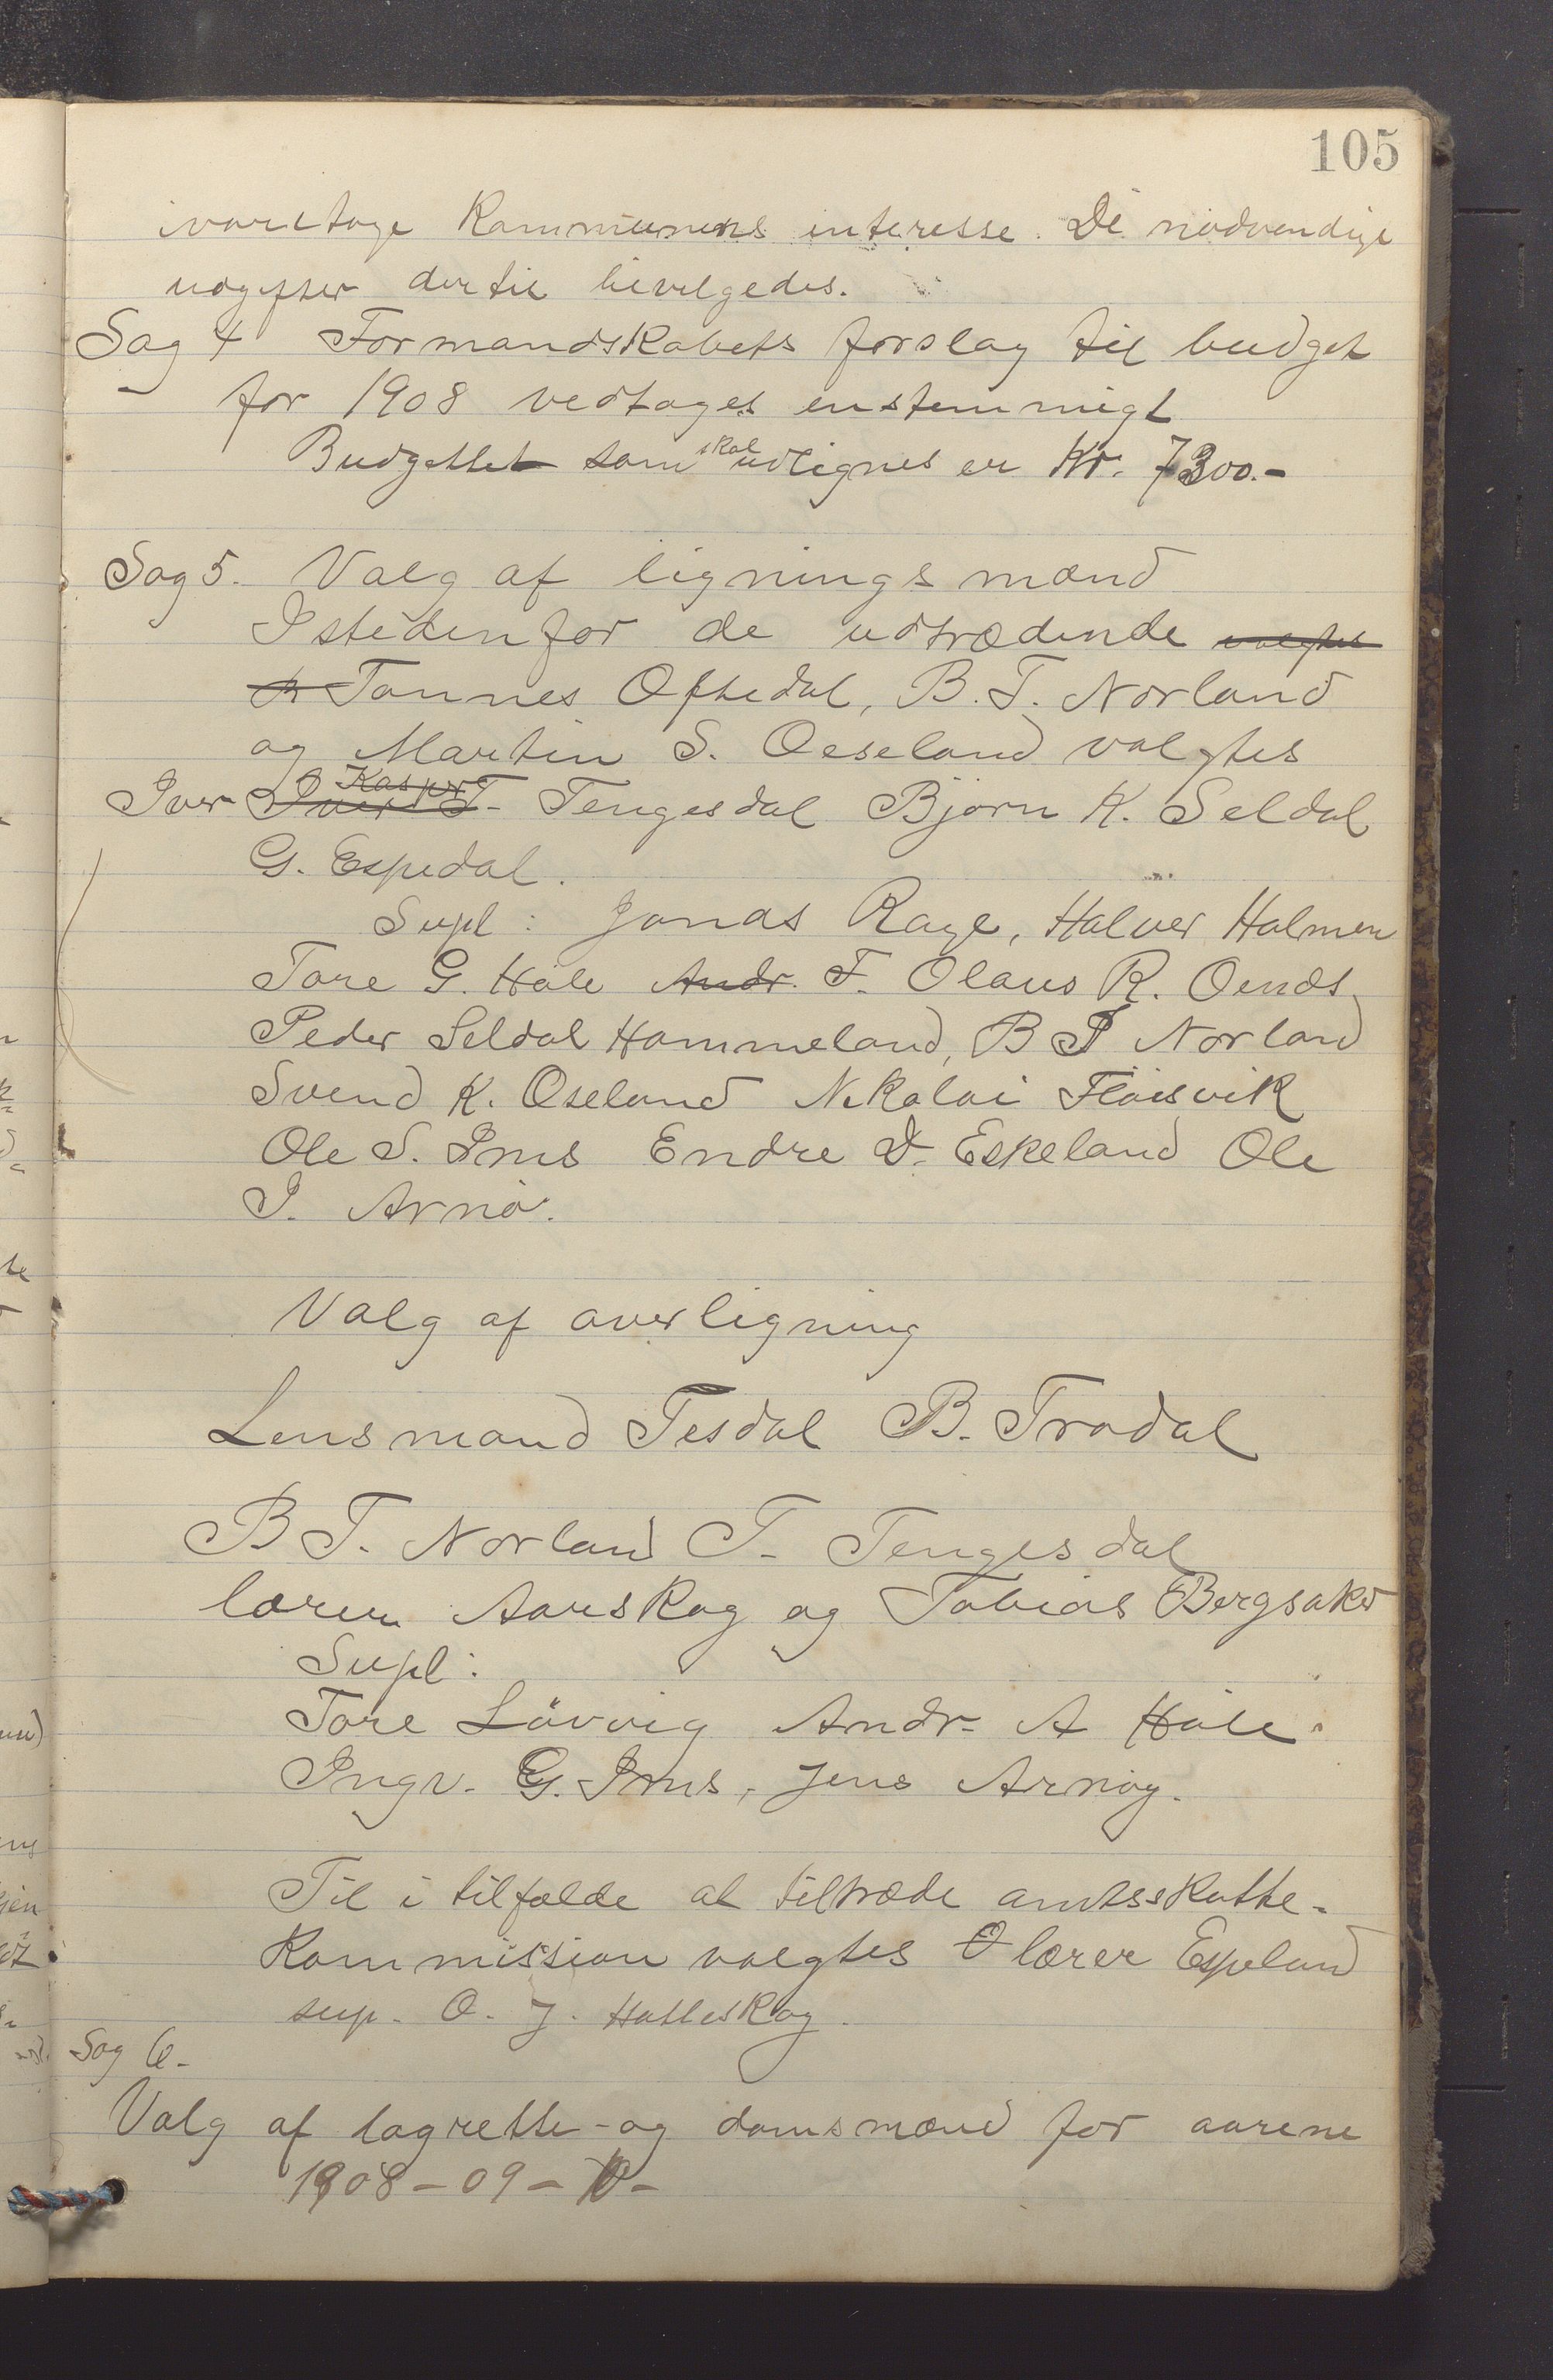 105
ivaretage Kommunens interesse. De nødvendige
udgifter dertil bevilgedes.
Sag 4 Formandskabets forslag til budget
for 1908 vedtages enstemmigt
Budgettet som skal udlignes er Kr. 7300.-
Sag 5. Valg af ligningsmænd
Istedenfor de udtrædende valgtes
Tønnes Oftedal, B. T. Norland
og Martin S. Oeseland valgtes
Kasper
Iver Iver T- Tengesdal Bjørn K. Seldal
G. Espedal.
Supl: Jonas Rage, Halver Holmen
Tore G. Høle Andr. F. Olaus R. Oends
Peder Seldal Hommeland, B T Norland
Svend K. Oseland Nikolai Fløisvik
Ole S. Ims Endre D. Eskeland Ole
I. Arnø.
Valg af overligning
Lensmand Tesdal B. Trodal
B T. Norland T- Tengesdal
lærer Aarskog og Tobias Bergsaker
Supl:
Tore Løvvig Andr- A Høle
Ingv. G. Ims, Jens Arnøy.
Til i tilfælde at tiltræde amtsskatte-
Kommission valgtes O lærer Espeland
sup. O. J. Hatleskog.
Sag 6-
Valg af lagrette- og domsmænd for aarene
1908-09-10-